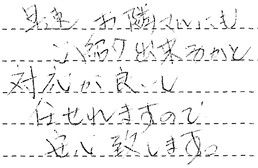 早速 お隣さんにも
ご紹介出来るかと
対応が良いし
任せれますので
安心致します。